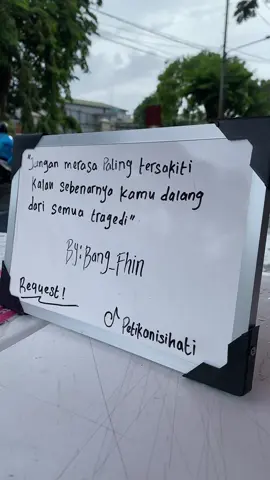 "Jangan merasa Paling tersakiti
kalau sebenarnya kamu dalang
dari semua tragedi"
By: Bang_Fhin
Request!
Petikanisihati